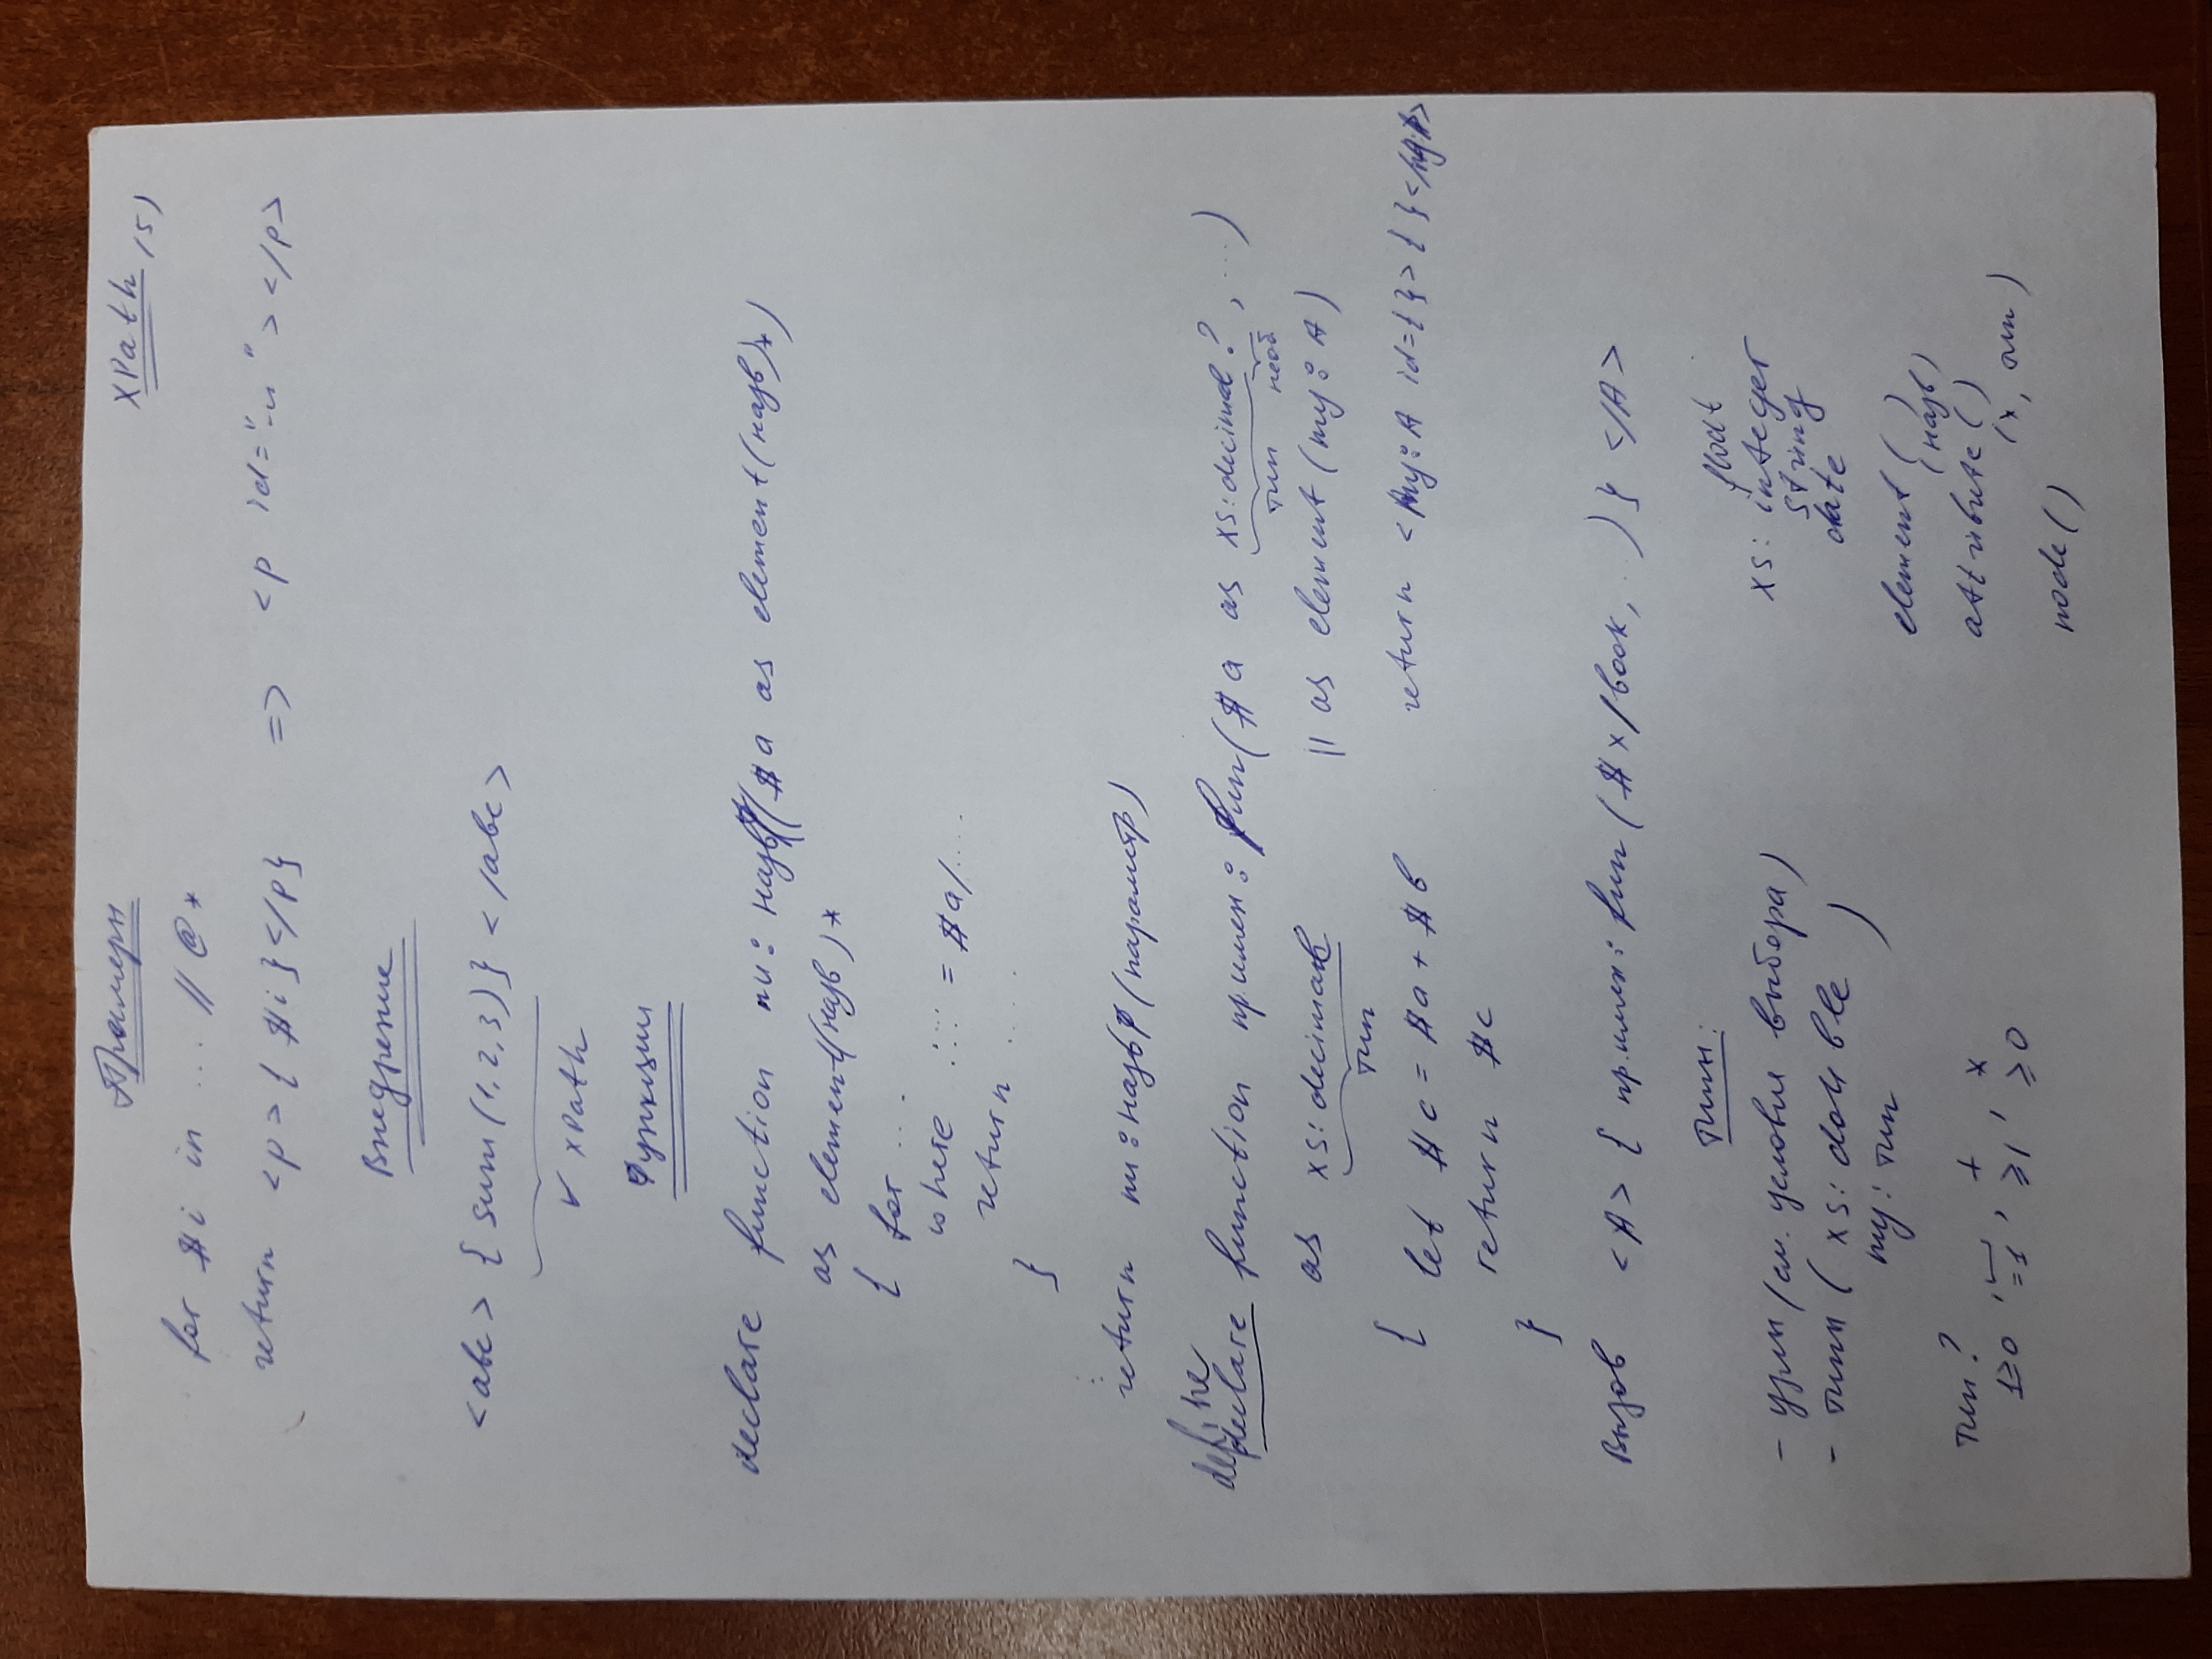 Примеры
XPath (5)
for $i in ... // @*
return <p>{ $i }</p>} => <p id="..."></p>
Внедрение
<abc> { sum(1,2,3)} </abc>
∀ XPath
Функции
declare function пи: назвФ($a as element(назв)*)
as element(назв)*
{ for ....
where ..... = $a/....
return ....
}
return пи:назвФ(параметр)
define
declare function примен: fun($a as xs:decimal?, ...)
тип необ.
as xs:decimal || as element (my:A)
тип
{ let $c = $a + $b return <my:A id={}>{ }</my:A>
return $c
}
Вызов <A> { примен: fun ( $x/book, ..)} </A>
типы:
- узлы (см. условие выбора)
- типы ( xs: double
my: тип )
тип? , , + , *
1≥0 =1 ≥1 ≥0
float
xs: integer
string
date
element ( )
(назв)
attribute ( )
(*, тип )
node ( )